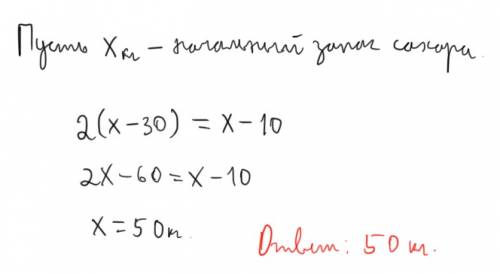 Пусть x кг – начальный запас сахара.
2(x-30) = x-10
2x-60=x-10
x=50кг.
Ответ: 50 кг.